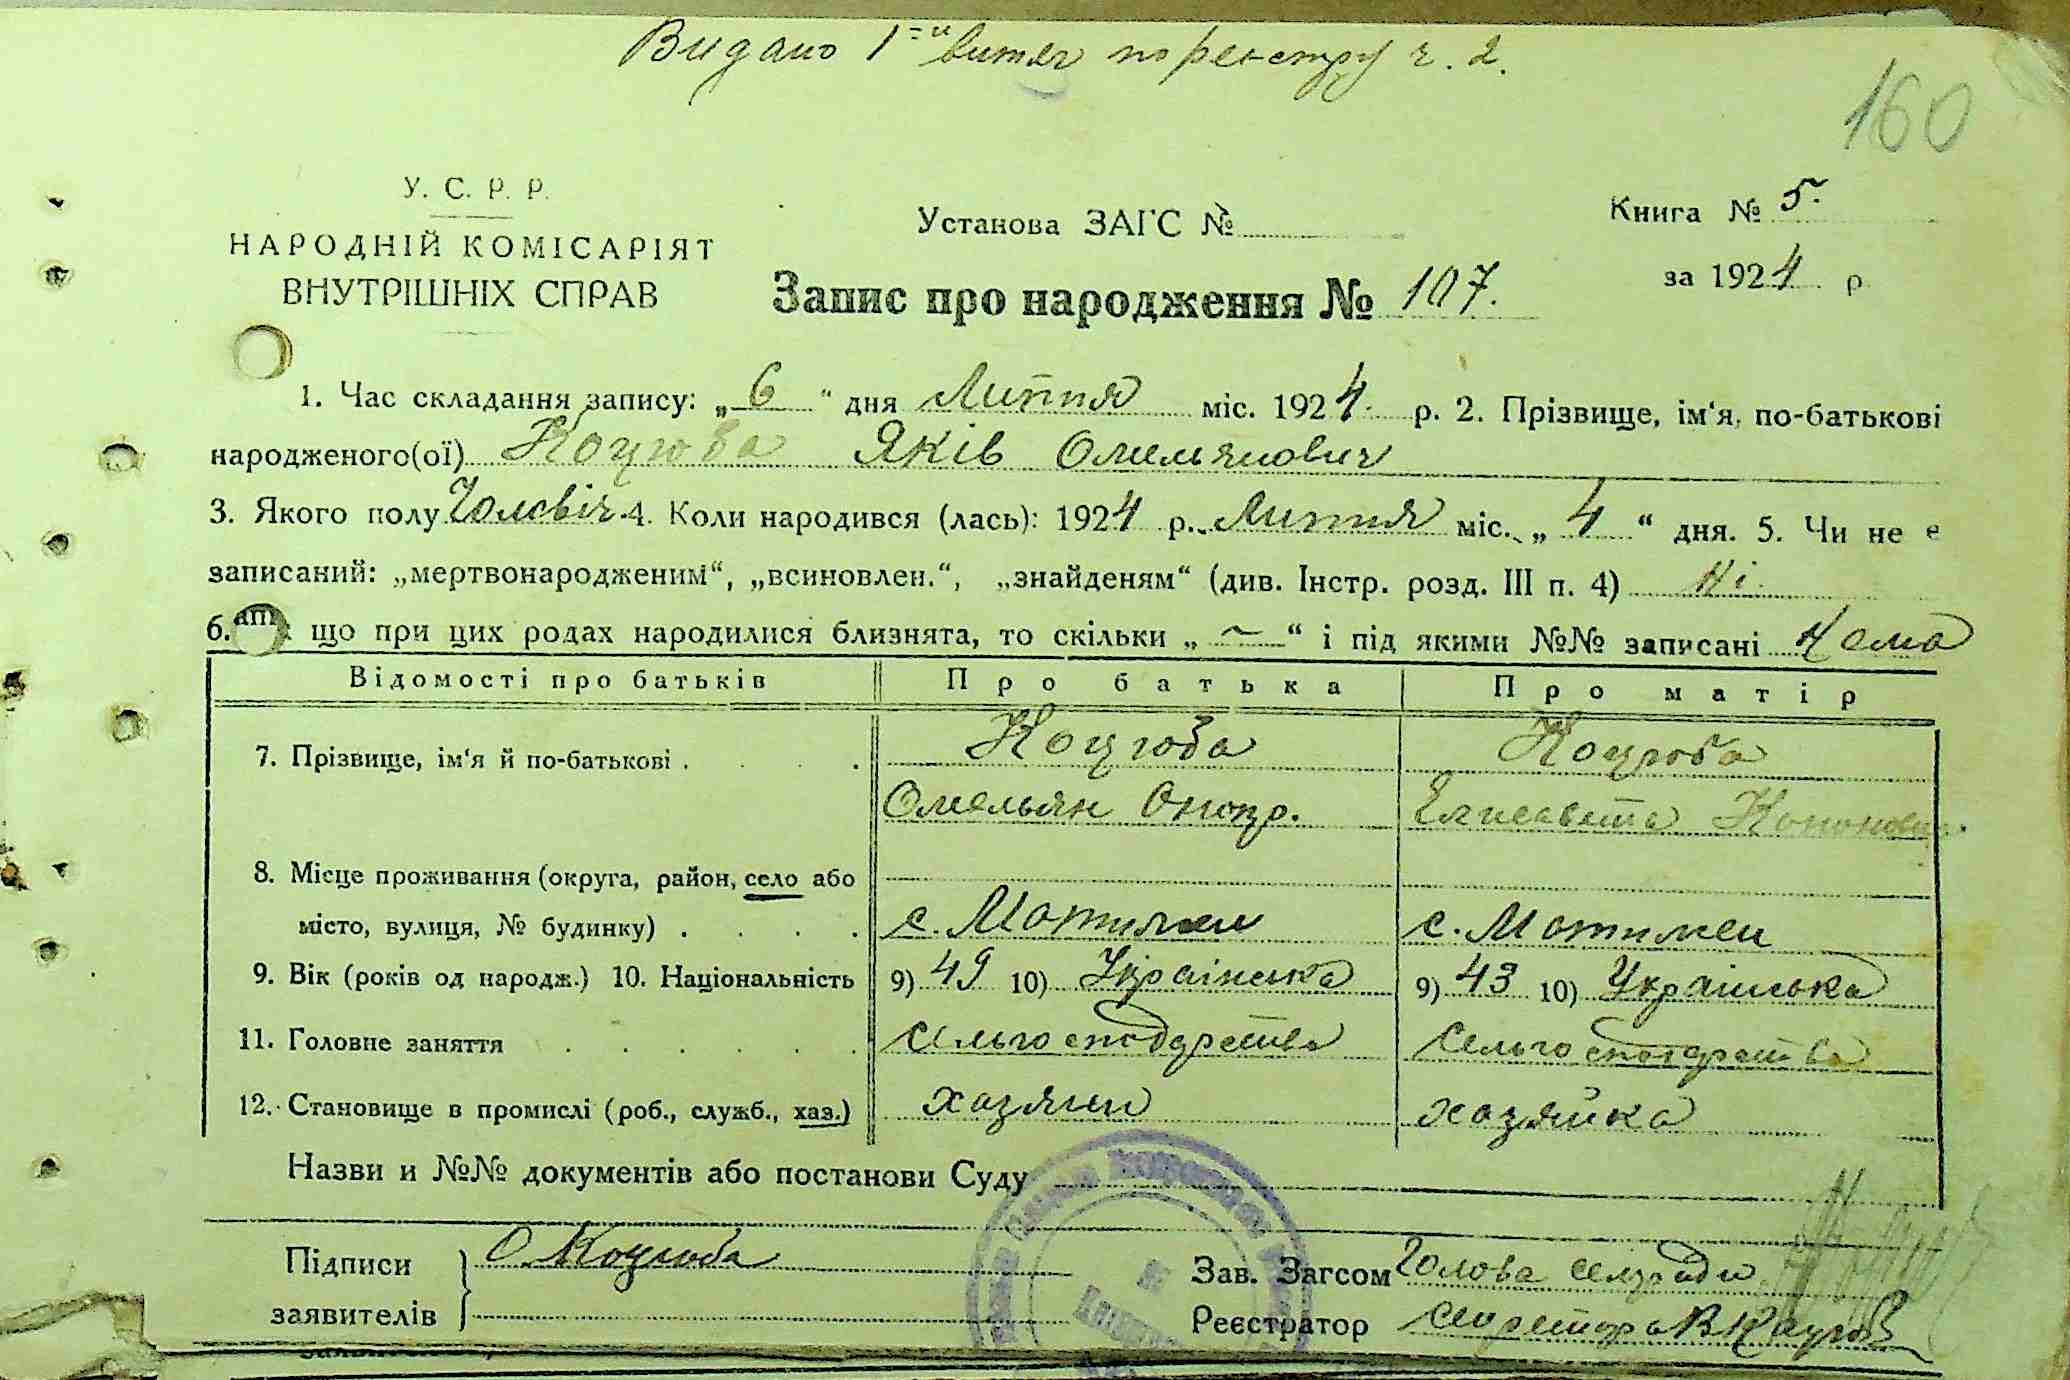 Видано 1-ий витяг по реєстру ч. 2.
160
У. С. Р. Р.
НАРОДНІЙ КОМІСАРІЯТ
ВНУТРІШНІХ СПРАВ
Установа ЗАГС №
Книга № 5.
за 1924 р
Запис про народження № 107.
1. Час складання запису: „6" дня Липня міс. 1924 р. 2. Прізвище, ім'я, по-батькові
народженого(ої) Коцюба Яків Омельянович
3. Якого полу Чоловіч 4. Коли народився (лась): 1924 р. Липня міс. „4" дня. 5. Чи не є
записаний: „мертвонародженим", „всиновлен.", „знайденям" (див. Інстр. розд. III п. 4) Ні.
6. що при цих родах народилися близнята, то скільки „~" і під якими №№ записані Нема
Відомості про батьків Про батька Про матір
7. Прізвище, ім'я й по-батькові . . . . Коцюба Коцюба
Омельян Оногр. Єлисавета Кононовн.
8. Місце проживання (округа, район, село або
місто, вулиця, № будинку) . . . . с. Мотижен с. Мотижен
9. Вік (років од народж.) 10. Національність 9) 49 10) Українська 9) 43 10) Українська
11. Головне заняття . . . . . . сельгосподарство сельгосподарство
12. Становище в промислі (роб., служб., хаз.) хазяин хазяйка
Назви и №№ документів або постанови Суду
Підписи заявителів О. Коцюба
Зав. Загсом Голова сельради
Реєстратор Секретарь В Коцюба